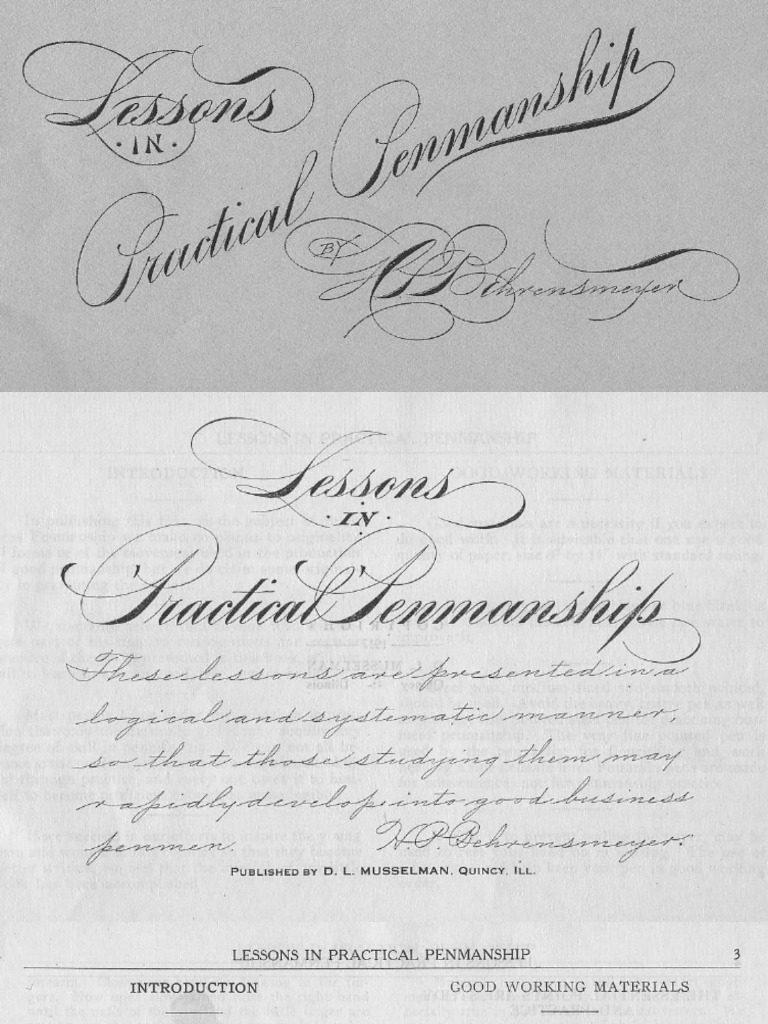 Lessons
· IN ·
Practical Penmanship
BY
H P Behrensmeyer
Lessons
· IN ·
Practical Penmanship
These lessons are presented in a
logical and systematic manner,
so that those studying them may
rapidly develop into good business
penmen. H. P. Behrensmeyer.
PUBLISHED BY D. L. MUSSELMAN, QUINCY, ILL.
LESSONS IN PRACTICAL PENMANSHIP 3
INTRODUCTION GOOD WORKING MATERIALS